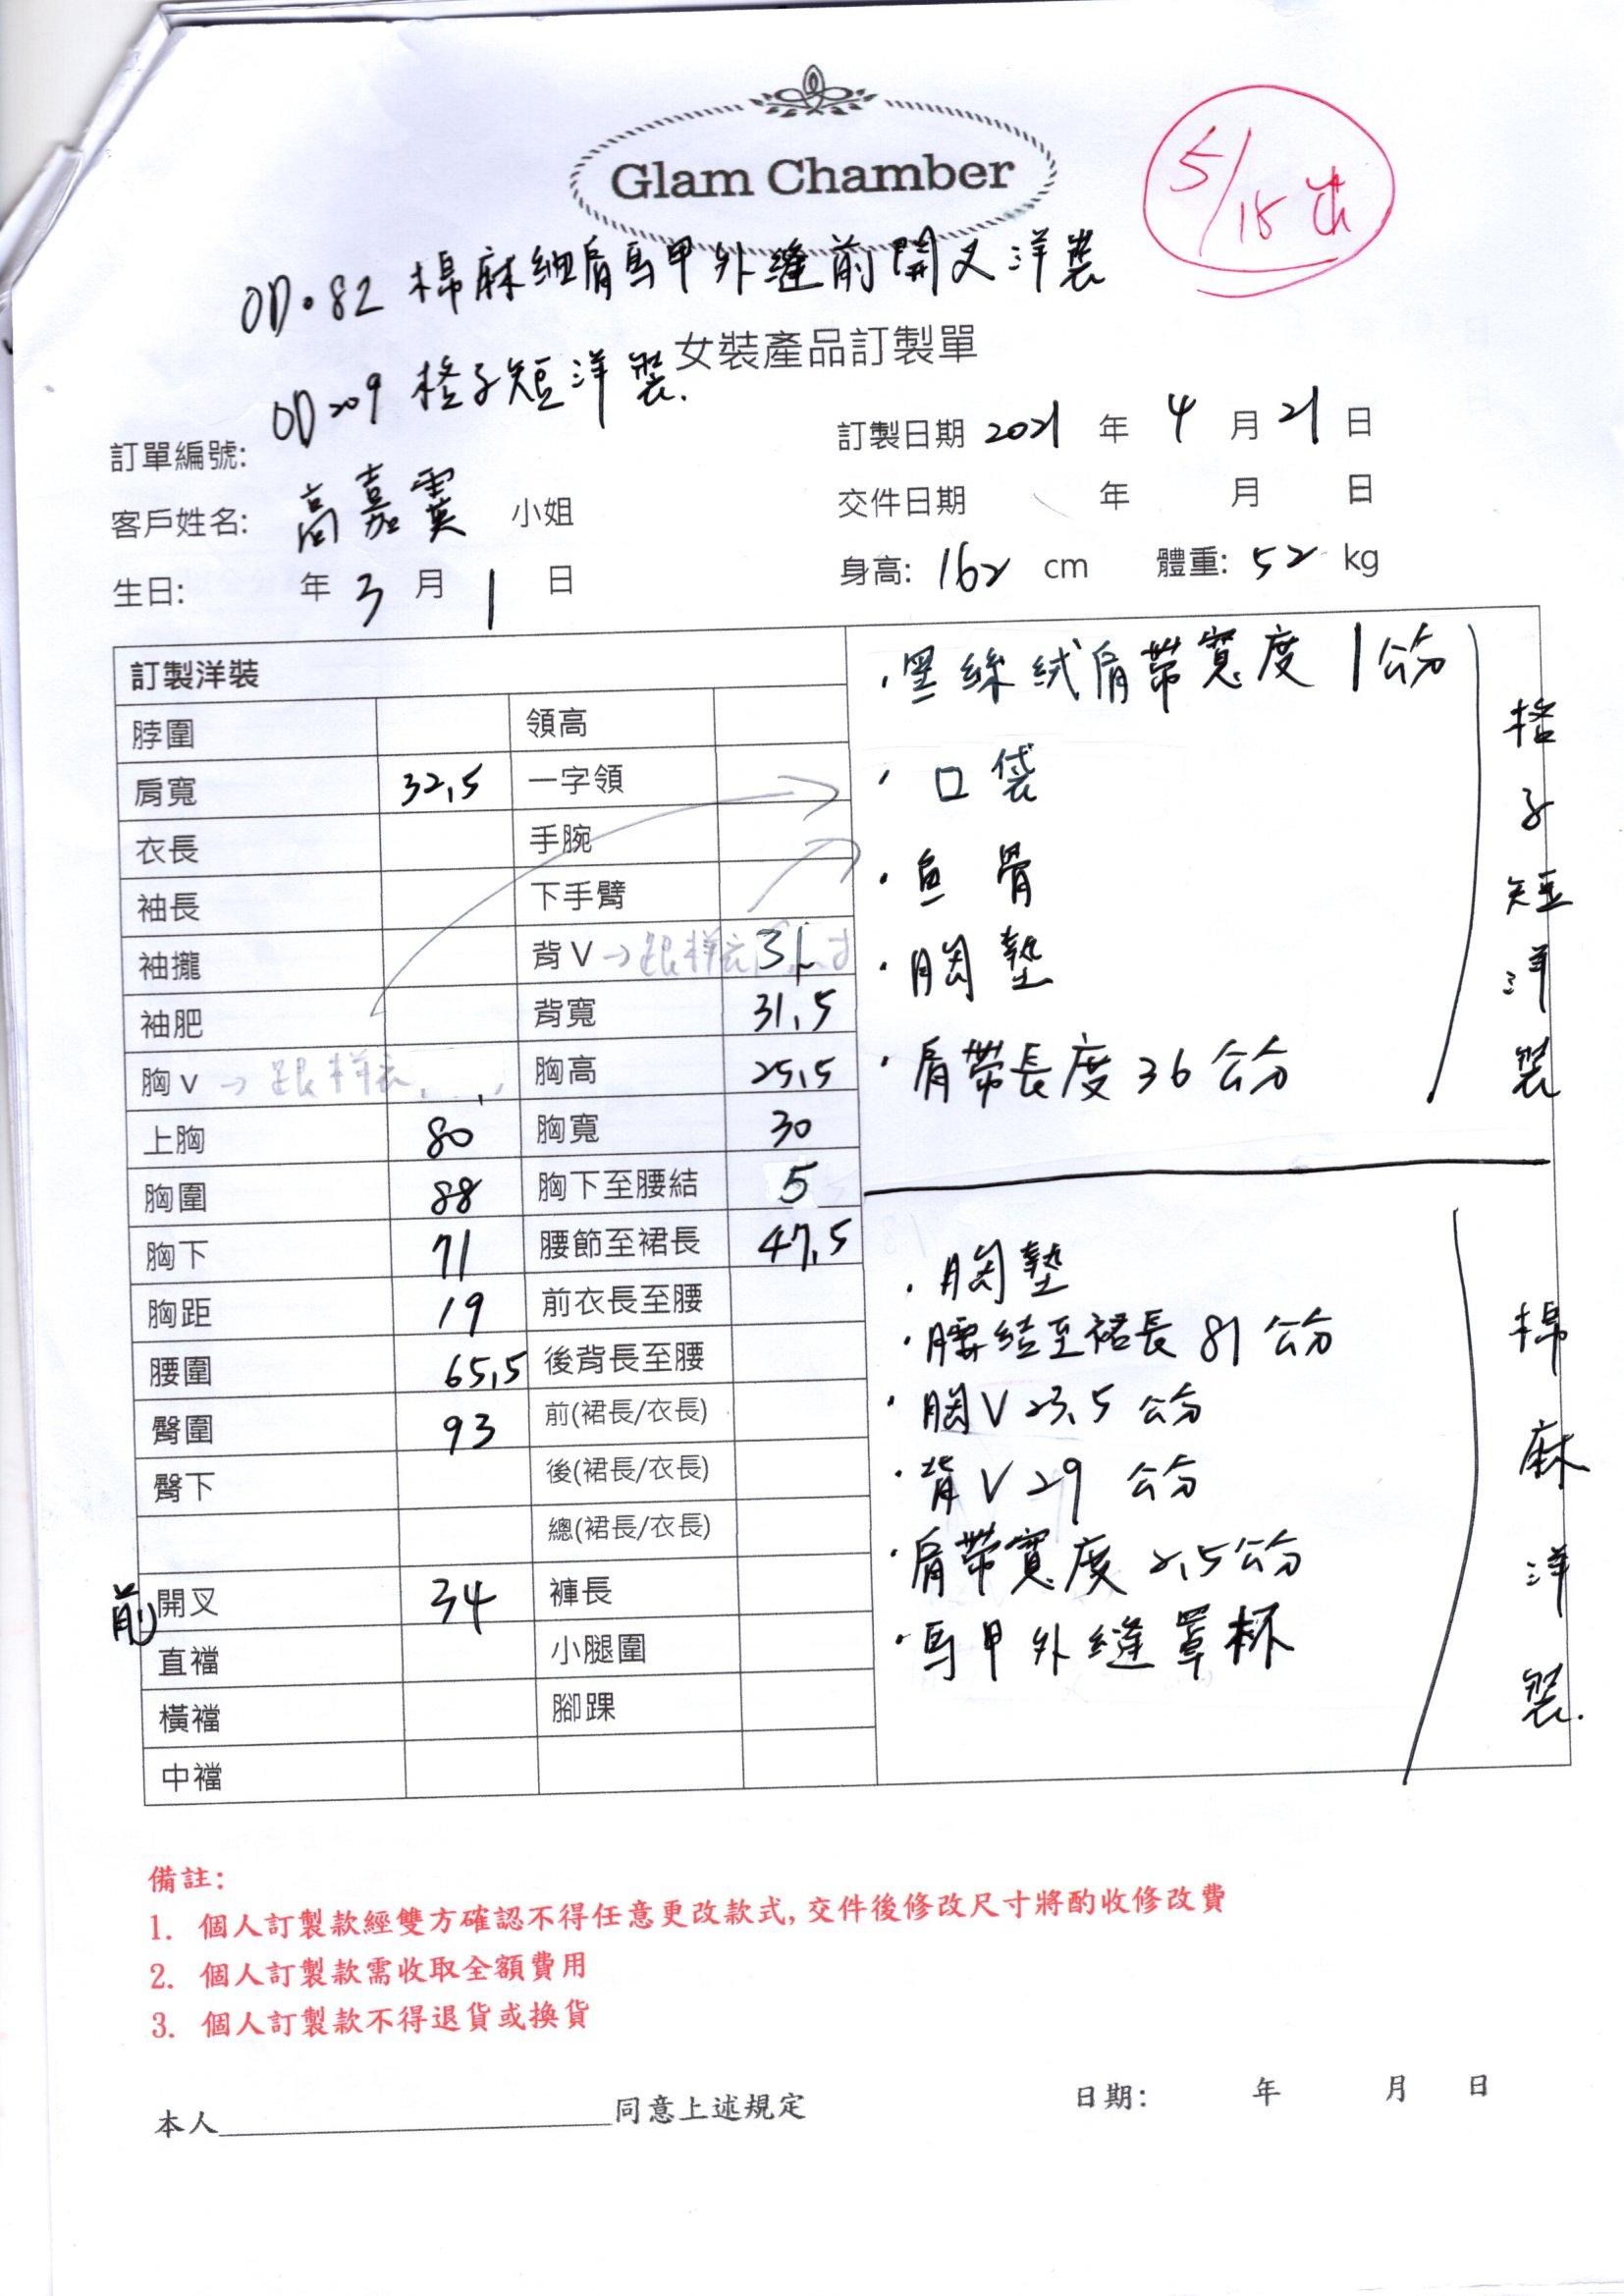 Glam Chamber
5/15
OD.82 棉麻細肩馬甲外縫前開叉洋裝
女裝產品訂製單
OD209 格子短洋裝.
訂單編號:
訂製日期 2021 年 4 月 21 日
客戶姓名: 高嘉霙 小姐
交件日期 年 月 日
生日: 年 3 月 1 日
身高: 162 cm 體重: 52 kg
訂製洋裝
脖圍 領高
肩寬 32.5 一字領
衣長 手腕
袖長 下手臂
袖攏 背V→跟樣衣 31
袖肥 背寬 31.5
胸v → 跟樣衣 胸高 25.5
上胸 80 胸寬 30
胸圍 88 胸下至腰結 5
胸下 71 腰節至裙長 47.5
胸距 19 前衣長至腰
腰圍 65.5 後背長至腰
臀圍 93 前(裙長/衣長)
臀下 後(裙長/衣長)
總(裙長/衣長)
前 開叉 34 褲長
直襠 小腿圍
橫襠 腳踝
中襠
·黑絲絨肩帶寬度 1公分
·口袋
·魚骨
·胸墊
·肩帶長度 36 公分
格子短洋裝
·胸墊
·腰結至裙長 81 公分
·胸V 23.5 公分
·背V 29 公分
·肩帶寬度 2.5公分
·馬甲外縫罩杯
棉麻洋裝.
備註:
1. 個人訂製款經雙方確認不得任意更改款式, 交件後修改尺寸將酌收修改費
2. 個人訂製款需收取全額費用
3. 個人訂製款不得退貨或換貨
本人 同意上述規定 日期: 年 月 日